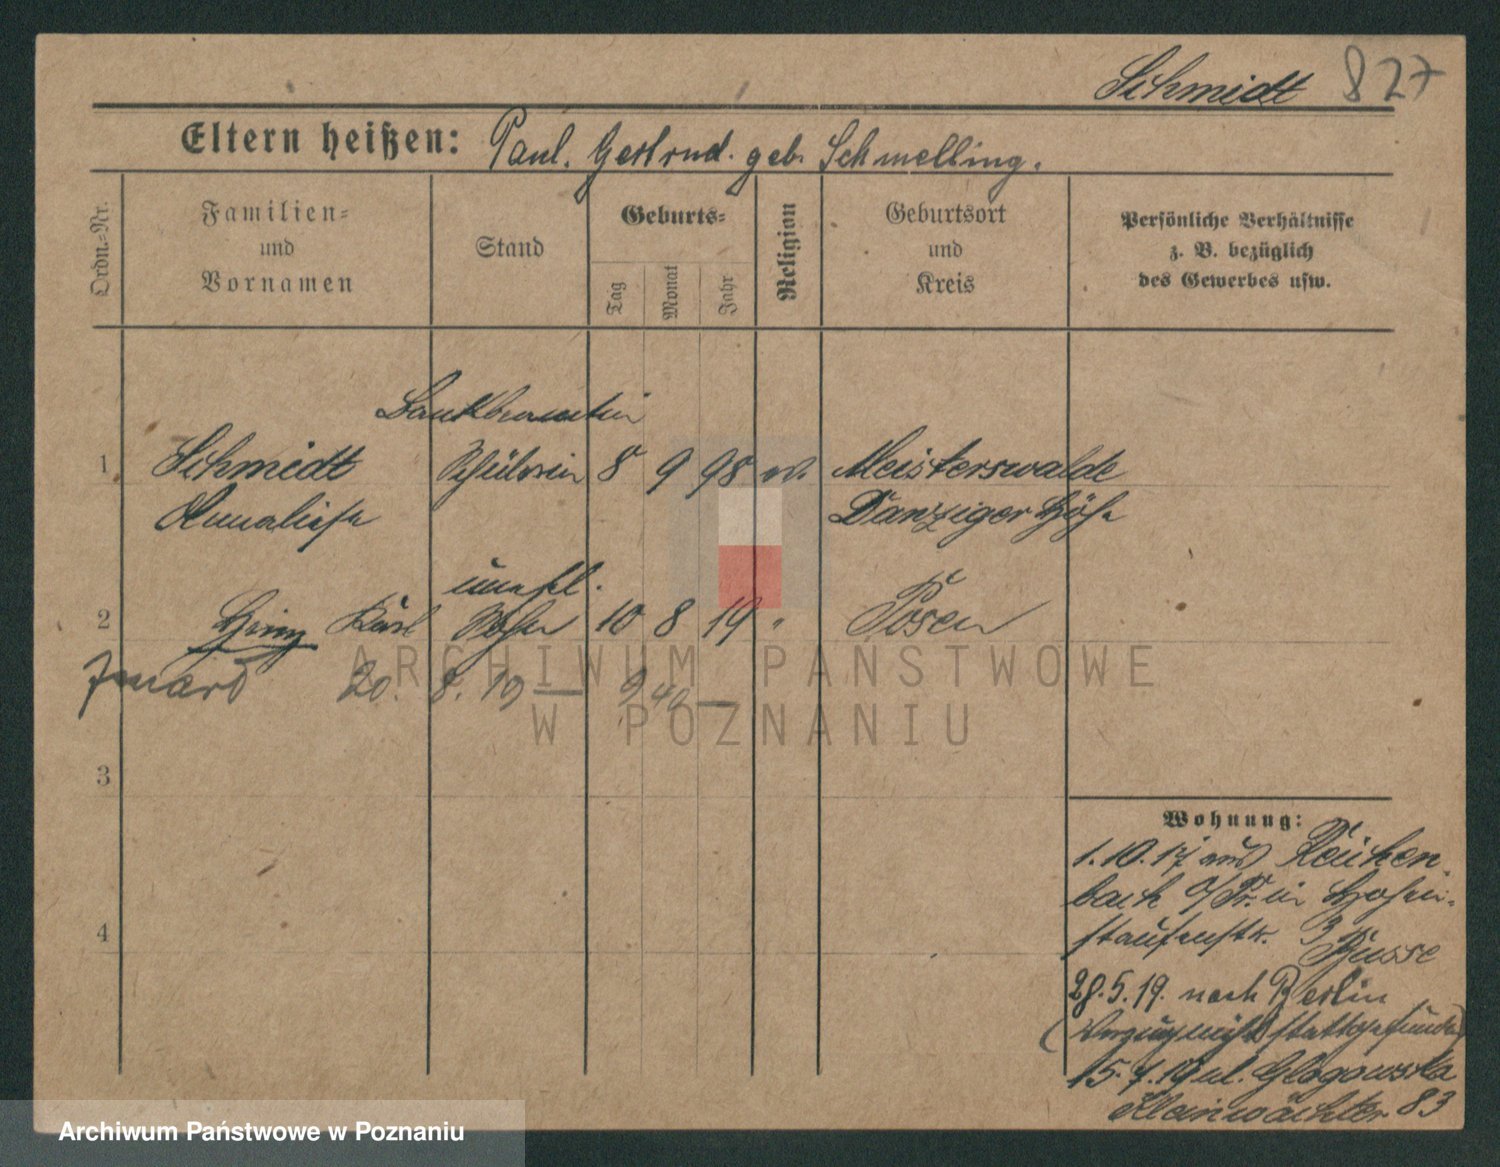 Schmidt 827
Eltern heißen: Paul. Gertrud. geb. Schmelling.
Ordn.=Nr.
Familien=
und
Vornamen
Stand
Geburts=
Tag
Monat
Jahr
Religion
Geburtsort
und
Kreis
Persönliche Verhältnisse
z. B. bezüglich
des Gewerbes usw.
Bankbeamtin
1 Schmidt Schülerin 8 9 98 ev. Meisterswalde
Annaliese Danziger Höhe
unehl.
2 Heinz Karl Sohn 10 8 19 " Posen
20. 8. 19 — 9 40 —
3
4
Wohnung:
1.10.17 aus Reichen-
bach O/Pr. in Hohen-
staufenstr. 3
Busse
28.5.19. nach Berlin
(Verzug nicht stattgefunden)
15.7.19 ul. Glogowska
Kleinwächter 83
ARCHIWUM PAŃSTWOWE
W POZNANIU
Archiwum Państwowe w Poznaniu